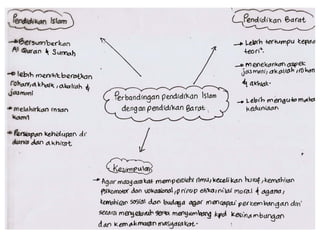 Pendidikan Islam
→ Bersumberkan
Al Quran & Sunnah
→ lebih menitikberatkan
rohani, akhlak, akaliah &
jasmani
→ melahirkan insan
kamil
→ Persiapan kehidupan di
dunia dan akhirat.
Perbandingan pendidikan Islam
dengan pendidikan Barat.
Pendidikan Barat
→ Lebih tertumpu kepada
teori.
→ Menekankan aspek
jasmani, akaliah, rohani
& akhlak.
→ Lebih mengutamakan
keduniaan
Kesimpulan
→ Agar masyarakat memperolehi ilmu, kecelikan huruf, kemahiran
psikomotor dan vokasional, prinsip etika, nilai moral & agama,
kemahiran sosial dan budaya agar mencapai perkembangan diri
secara menyeluruh serta menyumbang kpd kesinambungan
dan kemakmuran masyarakat.